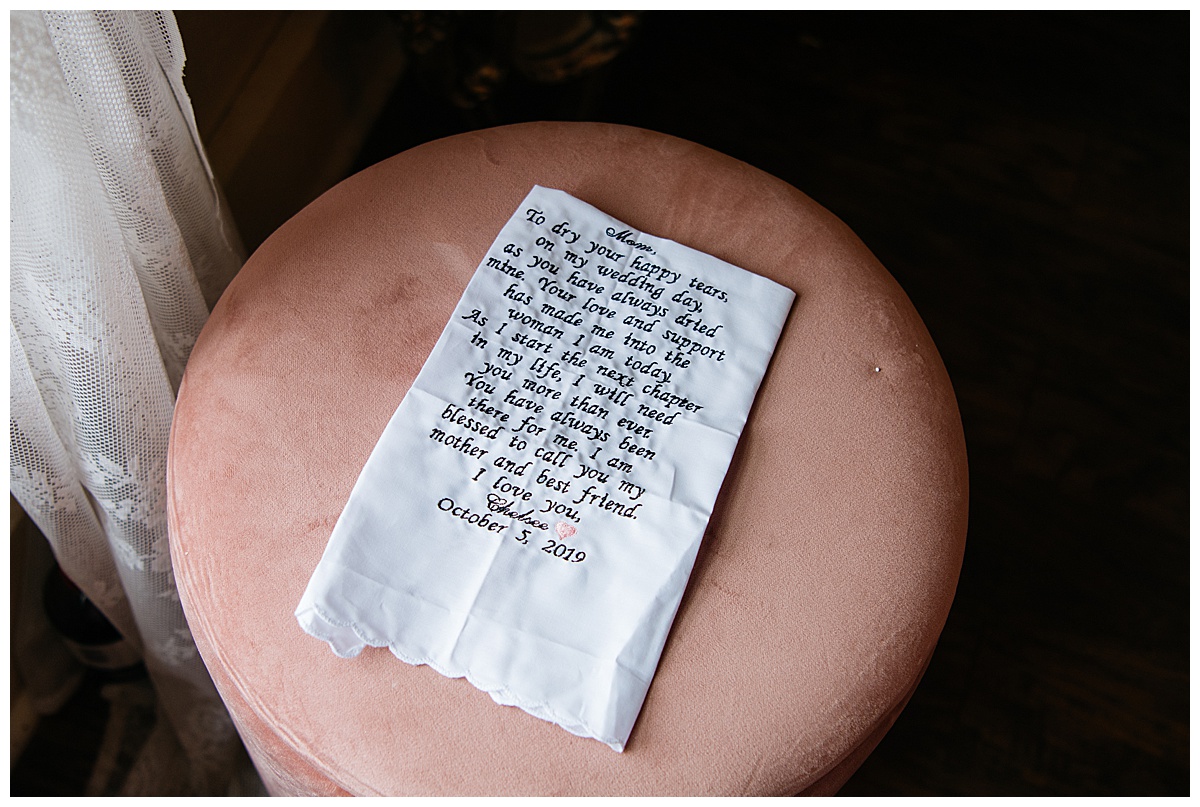 Mom,
To dry your happy tears,
on my wedding day,
as you have always dried
mine. Your love and support
has made me into the
woman I am today.
As I start the next chapter
in my life, I will need
you more than ever.
You have always been
there for me. I am
blessed to call you my
mother and best friend.
I love you,
Chelsee
October 5, 2019